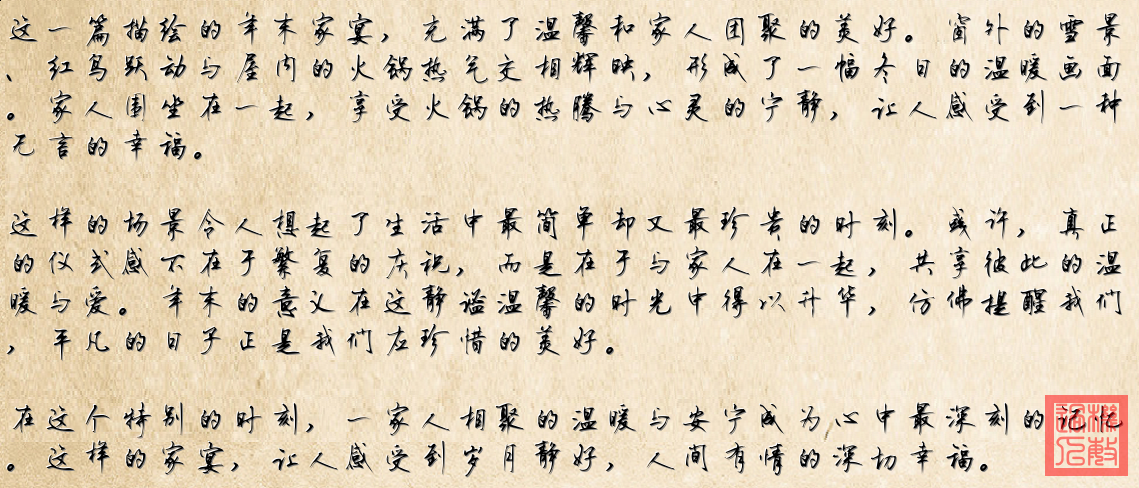 这一篇描绘的年末家宴，充满了温馨和家人团聚的美好。窗外的雪景
、红鸟跃动与屋内的火锅热气交相辉映，形成了一幅冬日的温暖画面
。家人围坐在一起，享受火锅的热腾与心灵的宁静，让人感受到一种
无言的幸福。
这样的场景令人想起了生活中最简单却又最珍贵的时刻。或许，真正
的仪式感不在于繁复的庆祝，而是在于与家人在一起，共享彼此的温
暖与爱。年末的意义在这静谧温馨的时光中得以升华，仿佛提醒我们
，平凡的日子正是我们在珍惜的美好。
在这个特别的时刻，一家人相聚的温暖与安宁成为心中最深刻的记忆
。这样的家宴，让人感受到岁月静好，人间有情的深切幸福。